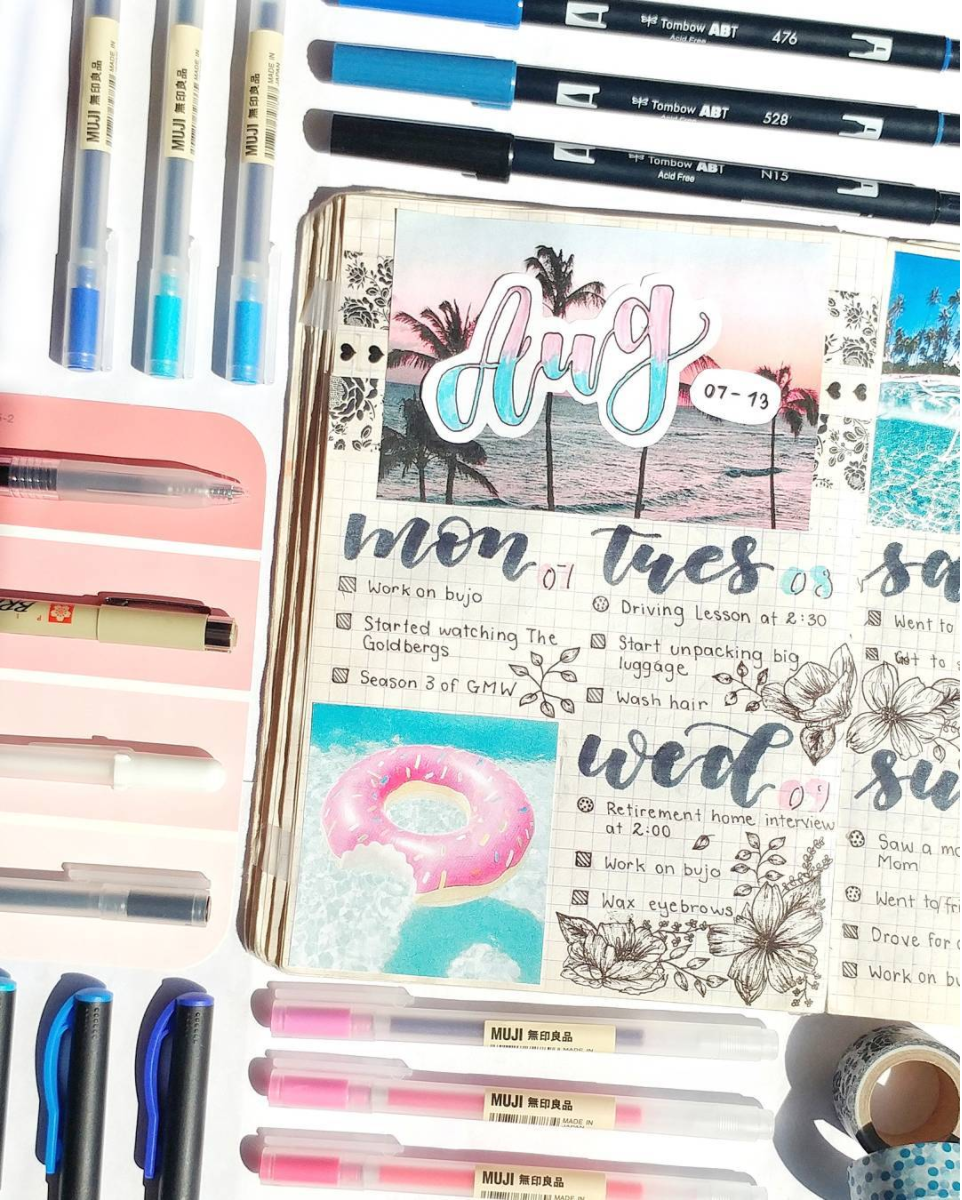 MUJI 無印良品
MADE IN
MUJI 無印良品
MADE IN
MUJI 無印良品
MADE IN
JAPAN
Tombow ABT
Acid Free
476
Tombow ABT
528
Tombow ABT
Acid Free
N15
Aug
07-13
mon 07
Work on bujo
Started watching The
Goldbergs
Season 3 of GMW
tues 08
Driving Lesson at 2:30
Start unpacking big
luggage
Wash hair
wed 09
Retirement home interview
at 2:00
Work on bujo
Wax eyebrows
sa
Went to
Got to s
su
Saw a mo
Mom
Went to fri
Drove for
Work on bu
MUJI 無印良品
MADE IN
MUJI 無印良品
MADE IN
JAPAN
MUJI 無印良品
MADE IN